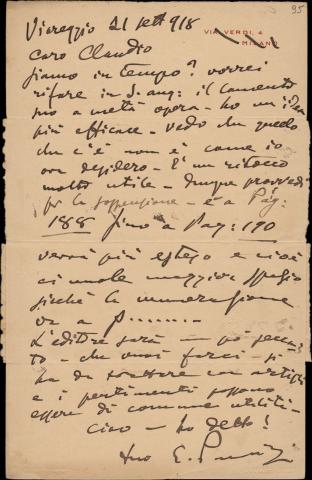 95
Viareggio 21 sett 918
VIA VERDI, 4
MILANO
caro Claudio
siamo in tempo? vorrei
rifare in S. ang: il lamento
fino a metà opera - ho un'idea
più efficace - Vedo che quello
che c'è non è come io
ora desidero - E' un ritocco
molto utile - dunque provvedi
per la sospensione - è a Pag:
188 fino a Pag: 190
verrà più esteso e cioè
ci vuole maggior spazio
sicchè la numerazione
va a p........
L'editore sarà un pò secca-
to - che vuoi farci - si
ha da trattare con artisti
e i pentimenti possono
essere di comune utilità -
ciao - ho detto!
tuo G. Puccini